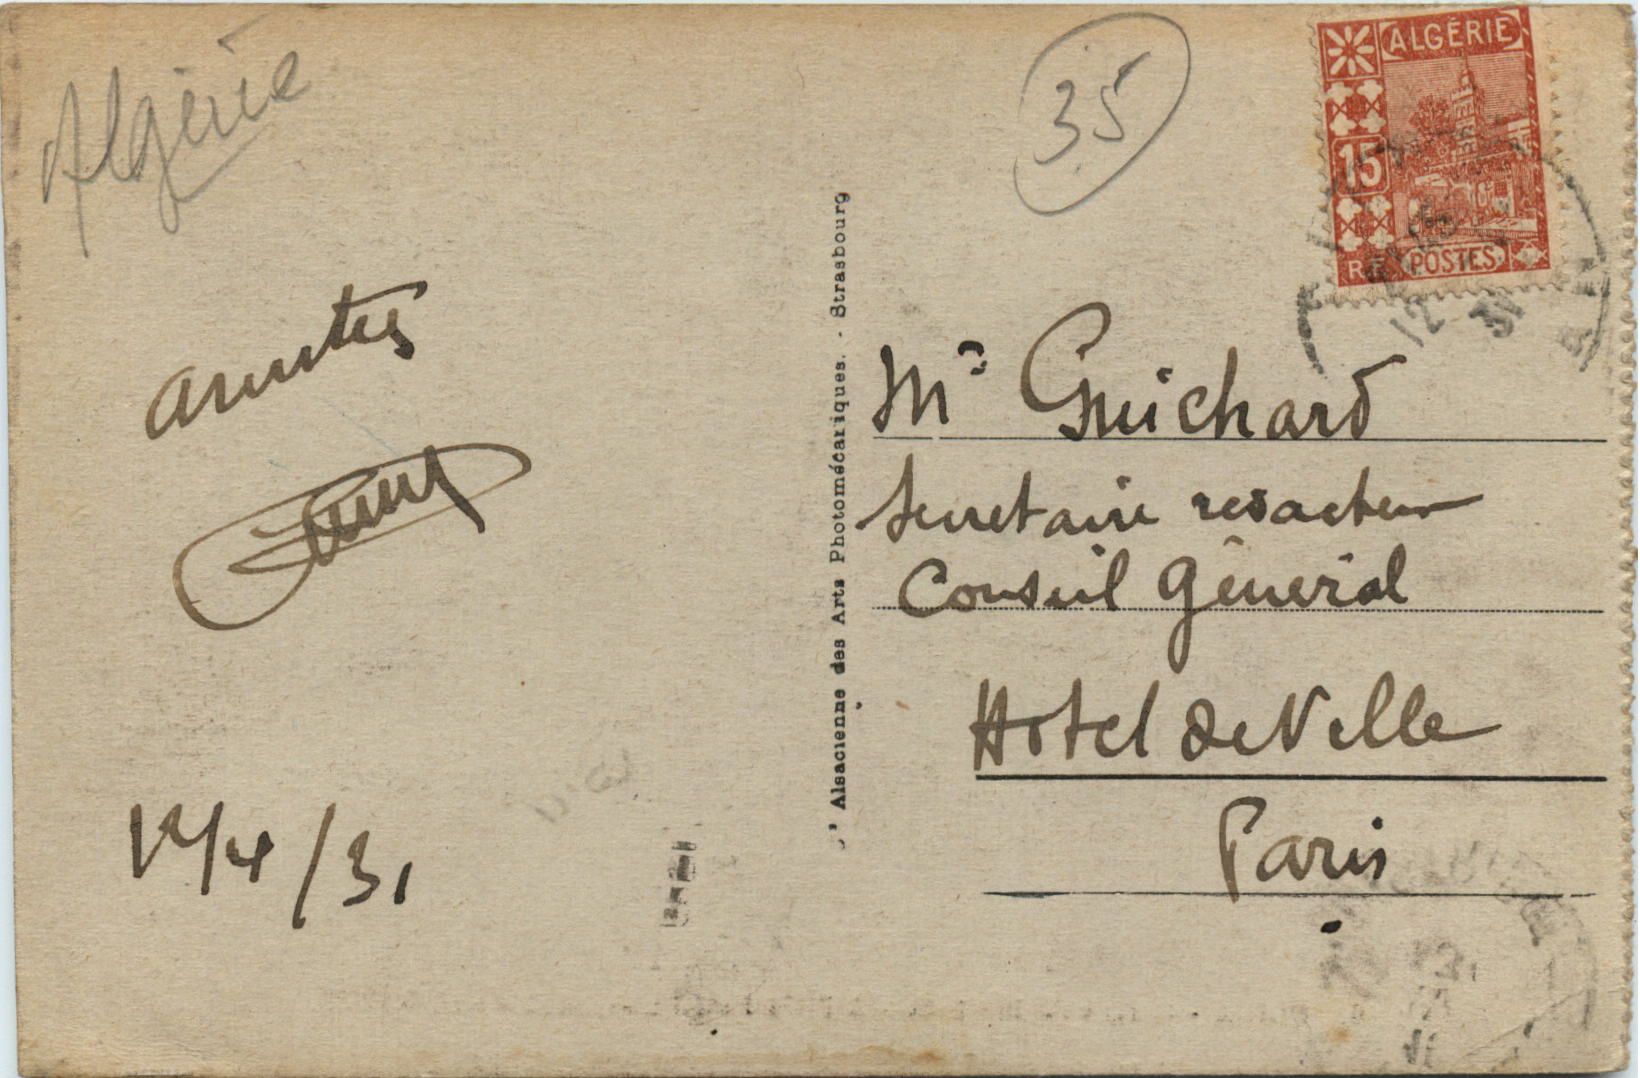 Algérie
35
ALGÉRIE
15
RF POSTES
12
31
amitiés
12/4/31
L'Alsacienne des Arts Photomécaniques. - Strasbourg
Mr Guichard
Secretaire redacteur
Conseil Général
Hotel de Ville
Paris